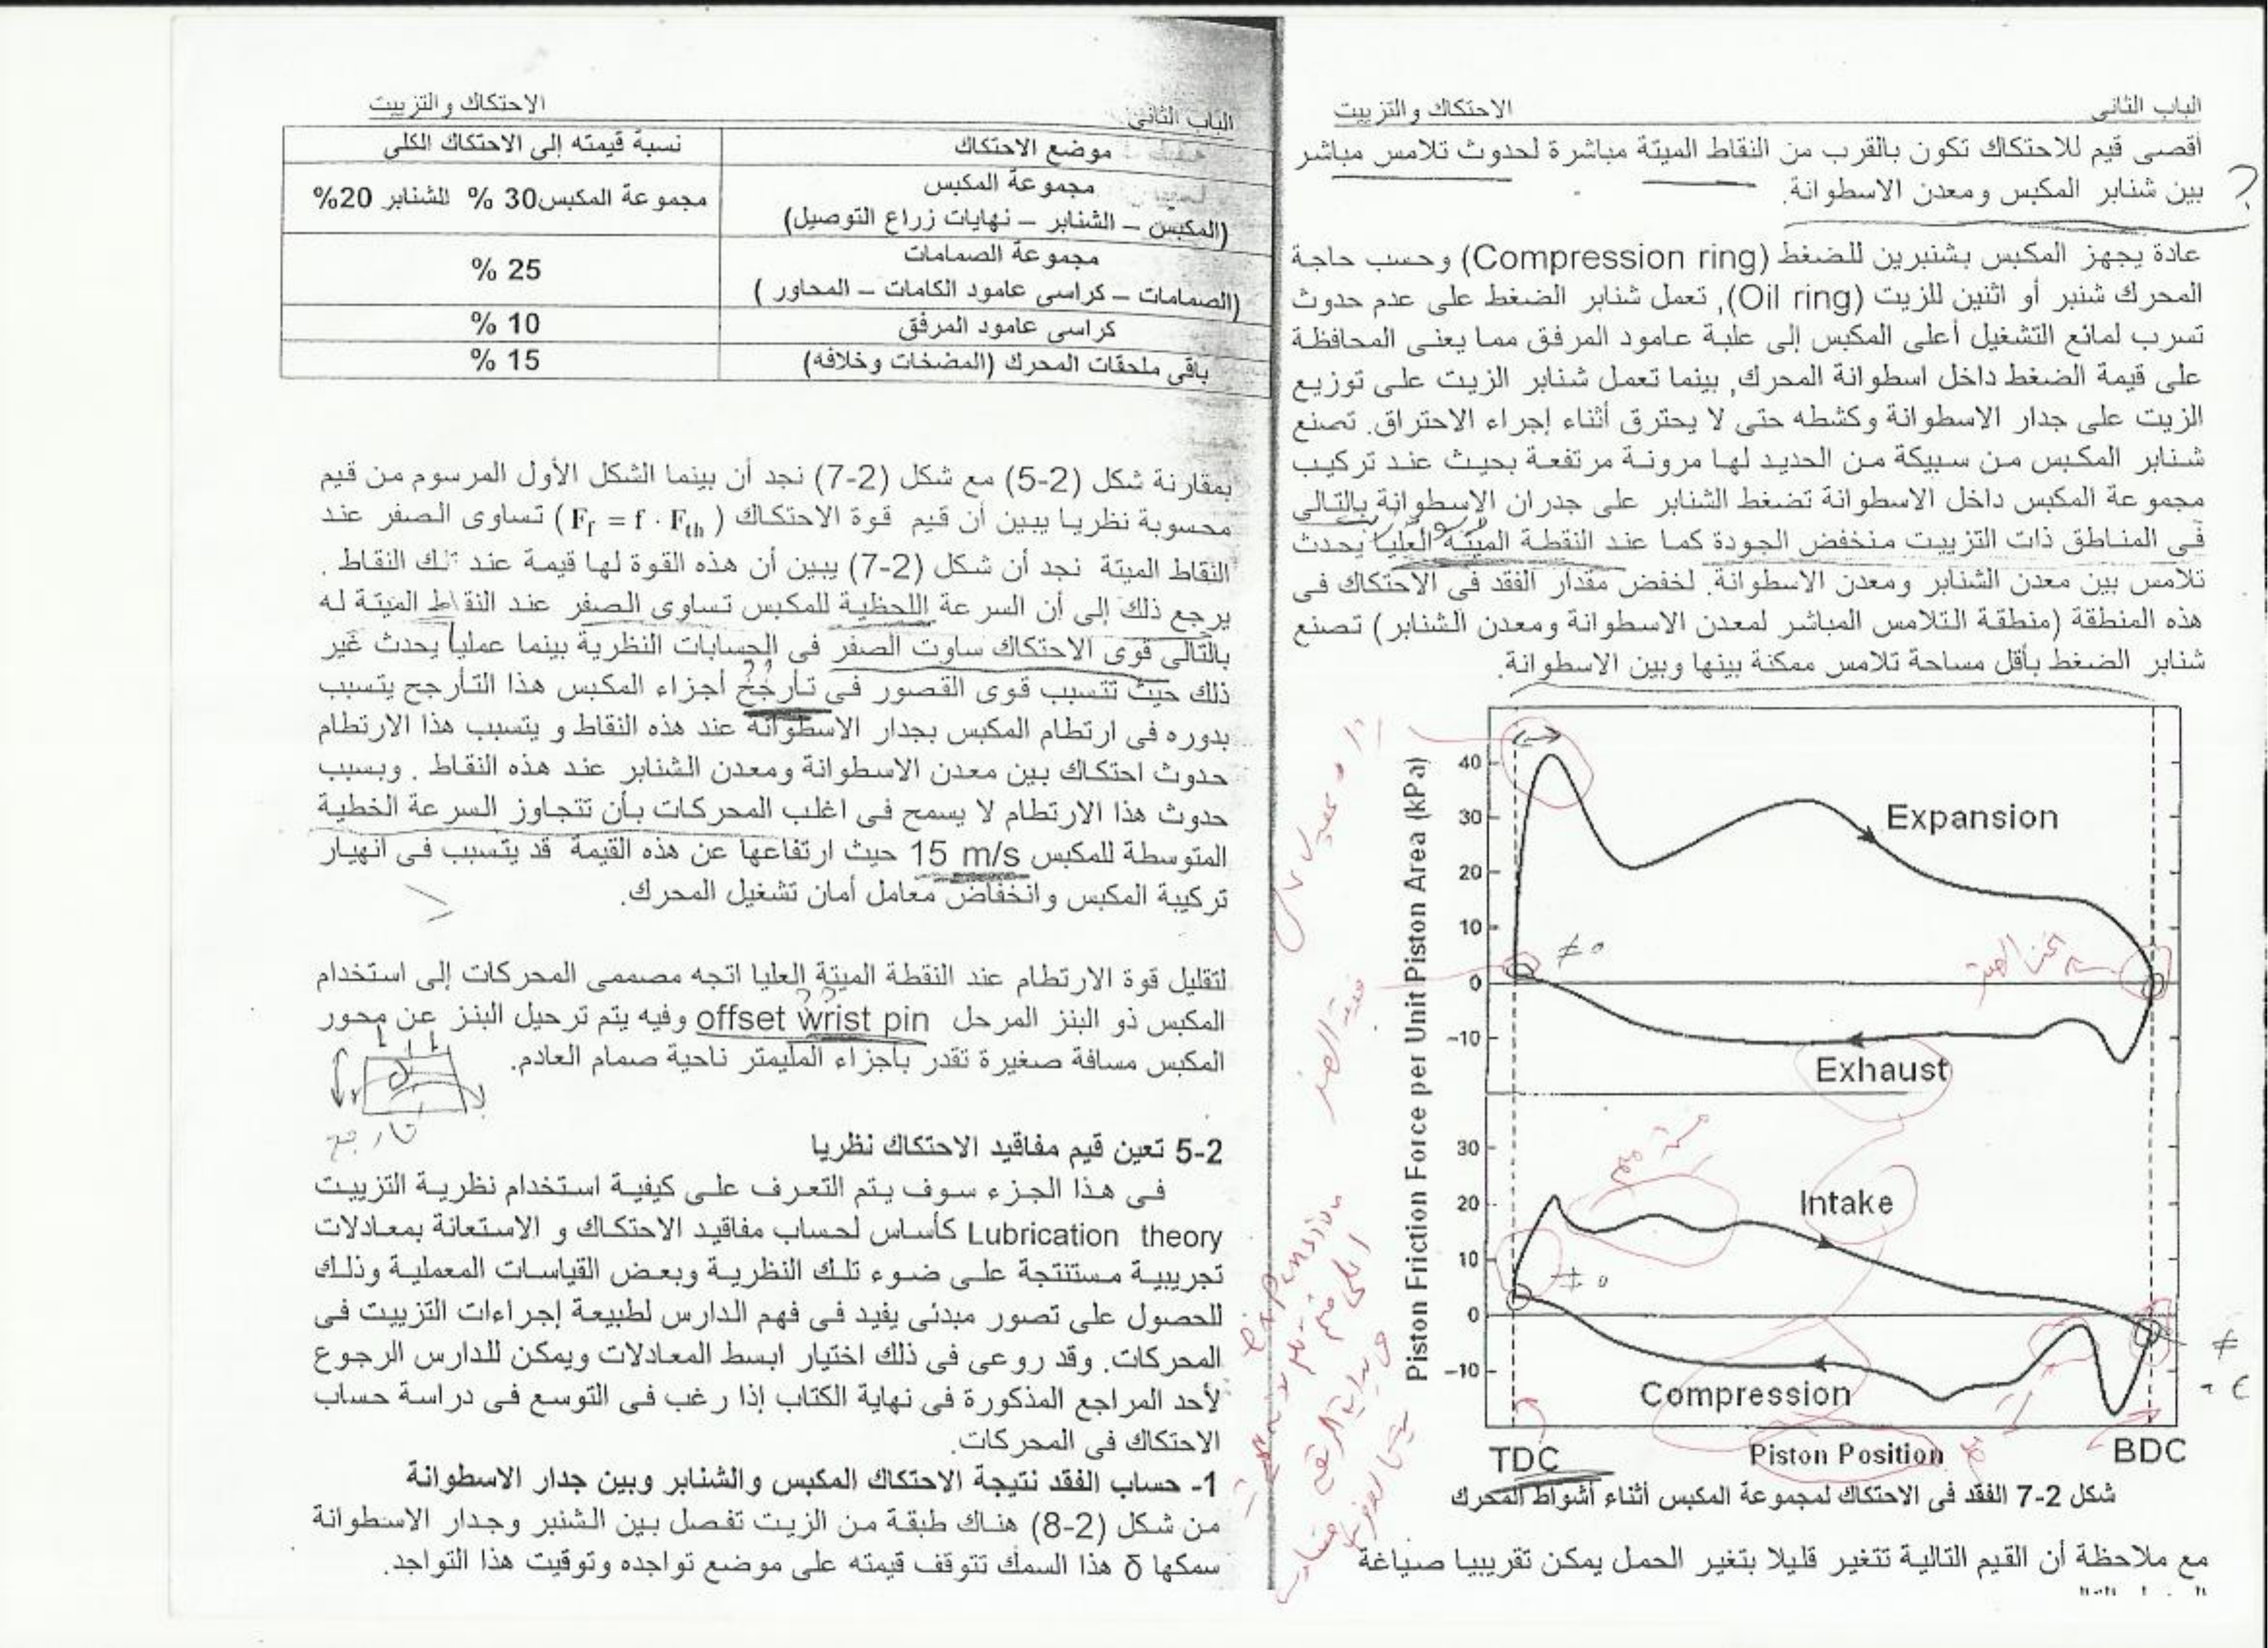 الباب الثانى الاحتكاك والتزييت
أقصى قيم للاحتكاك تكون بالقرب من النقاط الميتة مباشرة لحدوث تلامس مباشر
بين شنابر المكبس ومعدن الاسطوانة.
عادة يجهز المكبس بشنبرين للضغط (Compression ring) وحسب حاجة
المحرك شنبر أو اثنين للزيت (Oil ring), تعمل شنابر الضغط على عدم حدوث
تسرب لمائع التشغيل أعلى المكبس إلى علبة عامود المرفق مما يعنى المحافظة
على قيمة الضغط داخل اسطوانة المحرك, بينما تعمل شنابر الزيت على توزيع
الزيت على جدار الاسطوانة وكشطه حتى لا يحترق أثناء إجراء الاحتراق. تصنع
شنابر المكبس من سبيكة من الحديد لها مرونة مرتفعة بحيث عند تركيب
مجموعة المكبس داخل الاسطوانة تضغط الشنابر على جدران الإسطوانة بالتالى
فى المناطق ذات التزييت منخفض الجودة كما عند النقطة الميتة العليا يحدث
تلامس بين معدن الشنابر ومعدن الاسطوانة. لخفض مقدار الفقد فى الاحتكاك فى
هذه المنطقة (منطقة التلامس المباشر لمعدن الاسطوانة ومعدن الشنابر) تصنع
شنابر الضغط بأقل مساحة تلامس ممكنة بينها وبين الاسطوانة.
Piston Friction Force per Unit Piston Area (kPa)
40
30
20
10
0
-10
Expansion
≠ 0
Exhaust
30
20
10
0
-10
Intake
≠ 0
≠
Compression
TDC Piston Position BDC
شكل 2-7 الفقد فى الاحتكاك لمجموعة المكبس أثناء أشواط المحرك
مع ملاحظة أن القيم التالية تتغير قليلا بتغير الحمل يمكن تقريبيا صياغة
expansion
الباب الثانى الاحتكاك والتزييت
موضع الاحتكاك نسبة قيمته إلى الاحتكاك الكلى
مجموعة المكبس
(المكبس – الشنابر – نهايات زراع التوصيل) مجموعة المكبس30 % للشنابر 20%
مجموعة الصمامات
(الصمامات – كراسى عامود الكامات – المحاور ) 25 %
كراسى عامود المرفق 10 %
باقى ملحقات المحرك (المضخات وخلافه) 15 %
بمقارنة شكل (2-5) مع شكل (2-7) نجد أن بينما الشكل الأول المرسوم من قيم
محسوبة نظريا يبين أن قيم قوة الاحتكاك (F_f = f · F_th) تساوى الصفر عند
النقاط الميتة نجد أن شكل (2-7) يبين أن هذه القوة لها قيمة عند تلك النقاط .
يرجع ذلك إلى أن السرعة اللحظية للمكبس تساوى الصفر عند النقاط الميتة له
بالتالى قوى الاحتكاك ساوت الصفر فى الحسابات النظرية بينما عمليا يحدث غير
ذلك حيث تتسبب قوى القصور فى تأرجح أجزاء المكبس هذا التأرجح يتسبب
بدوره فى ارتطام المكبس بجدار الاسطوانة عند هذه النقاط و يتسبب هذا الارتطام
حدوث احتكاك بين معدن الاسطوانة ومعدن الشنابر عند هذه النقاط . وبسبب
حدوث هذا الارتطام لا يسمح فى اغلب المحركات بأن تتجاوز السرعة الخطية
المتوسطة للمكبس 15 m/s حيث ارتفاعها عن هذه القيمة قد يتسبب فى انهيار
تركيبة المكبس وانخفاض معامل أمان تشغيل المحرك.
لتقليل قوة الارتطام عند النقطة الميتة العليا اتجه مصممى المحركات إلى استخدام
المكبس ذو البنز المرحل offset wrist pin وفيه يتم ترحيل البنز عن محور
المكبس مسافة صغيرة تقدر بأجزاء المليمتر ناحية صمام العادم.
تارجح
2-5 تعين قيم مفاقيد الاحتكاك نظريا
فى هذا الجزء سوف يتم التعرف على كيفية استخدام نظرية التزييت
Lubrication theory كأساس لحساب مفاقيد الاحتكاك و الاستعانة بمعادلات
تجريبية مستنتجة على ضوء تلك النظرية وبعض القياسات المعملية وذلك
للحصول على تصور مبدئى يفيد فى فهم الدارس لطبيعة إجراءات التزييت فى
المحركات. وقد روعى فى ذلك اختيار ابسط المعادلات ويمكن للدارس الرجوع
لأحد المراجع المذكورة فى نهاية الكتاب إذا رغب فى التوسع فى دراسة حساب
الاحتكاك فى المحركات.
1- حساب الفقد نتيجة الاحتكاك المكبس والشنابر وبين جدار الاسطوانة
من شكل (2-8) هناك طبقة من الزيت تفصل بين الشنبر وجدار الاسطوانة
سمكها δ هذا السمك تتوقف قيمته على موضع تواجده وتوقيت هذا التواجد.